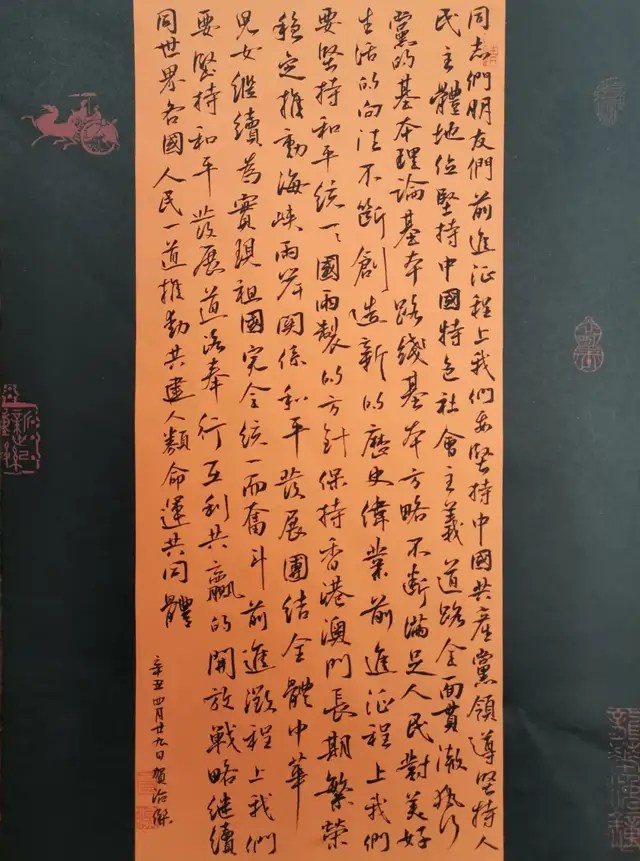 同志們朋友們前進征程上我們要堅持中國共產黨領導堅持人
民主體地位堅持中國特色社會主義道路全面貫澈執行
黨的基本理論基本路綫基本方略不斷滿足人民對美好
生活的向往不斷創造新的歷史偉業前進征程上我們
要堅持和平統一、國兩製的方針保持香港澳門長期繁榮
穩定推動海峽兩岸關係和平發展團結全體中華
兒女繼續為實現祖國完全統一而奮斗前進徵程上我們
要堅持和平發展道路奉行互利共贏的開放戰略繼續
同世界各國人民一道推動共建人類命運共同體
辛丑四月廿九日賀治傑